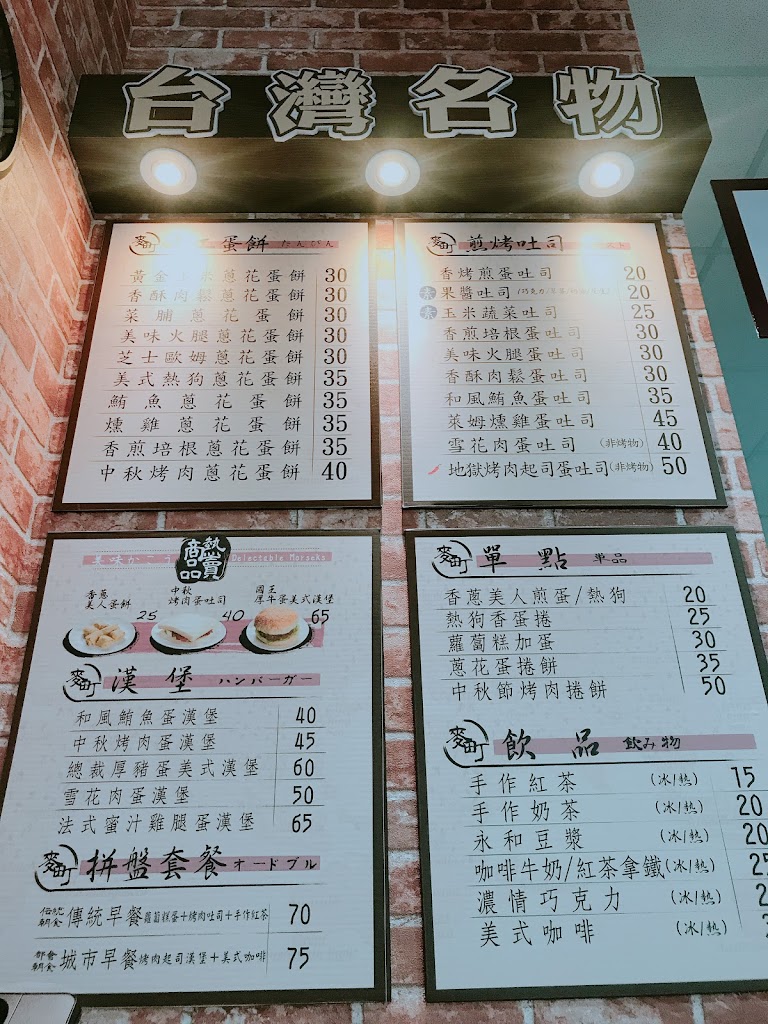 台灣名物
麥町 蛋餅 たんぴん
黃金玉米蔥花蛋餅 30
香酥肉鬆蔥花蛋餅 30
菜脯蔥花蛋餅 30
美味火腿蔥花蛋餅 30
芝士歐姆蔥花蛋餅 30
美式熱狗蔥花蛋餅 35
鮪魚蔥花蛋餅 35
燻雞蔥花蛋餅 35
香煎培根蔥花蛋餅 35
中秋烤肉蔥花蛋餅 40
麥町 煎烤吐司
香烤煎蛋吐司 20
素 果醬吐司 20
素 玉米蔬菜吐司 25
香煎培根蛋吐司 30
美味火腿蛋吐司 30
香酥肉鬆蛋吐司 30
和風鮪魚蛋吐司 35
萊姆燻雞蛋吐司 45
雪花肉蛋吐司 (非烤物) 40
地獄烤肉起司蛋吐司(非烤物) 50
美味かこう 熱賣商品 Delectable Morsels
香蔥美人蛋餅 25
中秋烤肉蛋吐司 40
國王厚牛蛋美式漢堡 65
麥町 漢堡 ハンバーガー
和風鮪魚蛋漢堡 40
中秋烤肉蛋漢堡 45
總裁厚豬蛋美式漢堡 60
雪花肉蛋漢堡 50
法式蜜汁雞腿蛋漢堡 65
麥町 拼盤套餐 オードブル
傳統朝食 傳統早餐 蘿蔔糕蛋+烤肉吐司+手作紅茶 70
都會朝食 城市早餐 烤肉起司漢堡+美式咖啡 75
麥町 單點 単品
香蔥美人煎蛋/熱狗 20
熱狗香蛋捲 25
蘿蔔糕加蛋 30
蔥花蛋捲餅 35
中秋節烤肉捲餅 50
麥町 飲品 飲み物
手作紅茶 (冰/熱) 15
手作奶茶 (冰/熱) 20
永和豆漿 (冰/熱) 20
咖啡牛奶/紅茶拿鐵(冰/熱) 25
濃情巧克力 (冰/熱) 2
美式咖啡 (冰/熱)